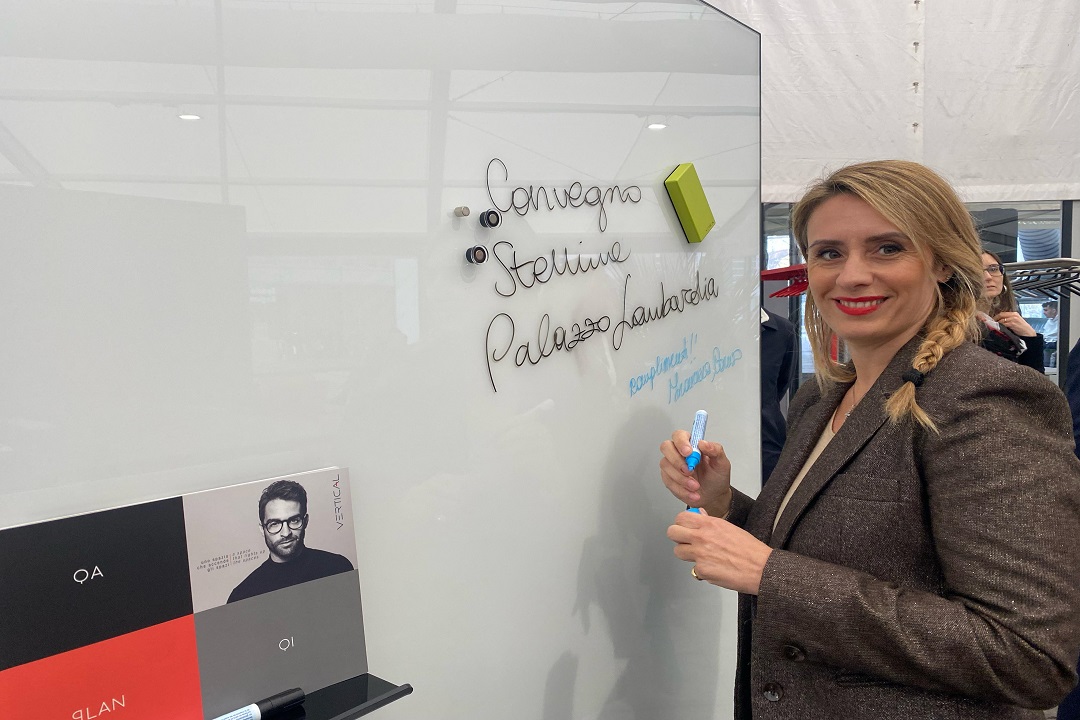 Convegno
Stelline
Palazzo Lombardia
complimenti!!
VERTICAL
QA
QI
PLAN